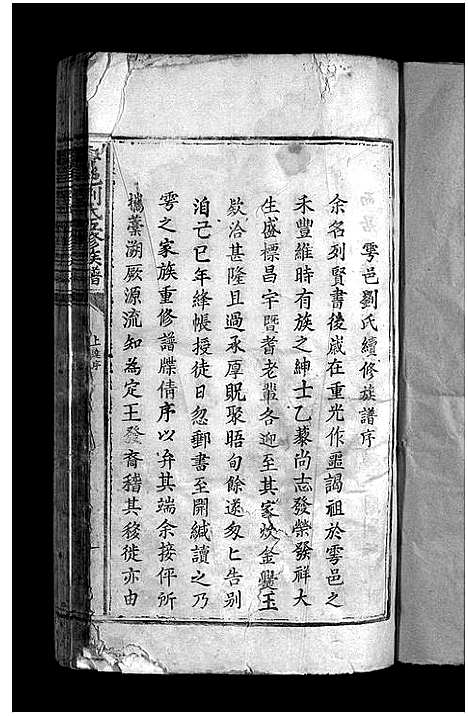 雩邑劉氏續修族譜序
余名列賢書後歲在重光作噩謁祖於雩邑之
禾豐維時有族之紳士乙藜尚志發榮發祥大
生盛標昌宇暨耆老輩各迎至其家炊金爨玉
欵洽甚隆且過承厚貺聚晤旬餘遂匆匕告别
洎己巳年絳帳授徒日忽郵書至開緘讀之乃
雩之家族重修譜牒倩序以弁其端余接伻所
攜藁溯厥源流知為定王發裔稽其移徙亦由
邑劉氏五修族譜
上達序